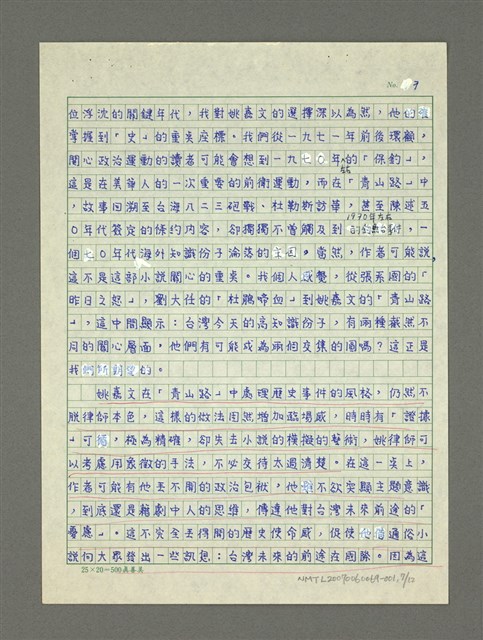 No. 7
位浮沈的關鍵年代，我對姚嘉文的選擇深以為然，他的確
掌握到「史」的重要座標。我們從一九七一年前後環顧，
關心政治運動的讀者可能會想到一九七〇年的「保釣」，
這是在美華人的一次重要的前衛運動，而在「青山路」中
，故事回溯至台海八二三砲戰、杜勒斯訪華，甚至陳述五
1970年左右
〇年代簽定的條約內容，卻獨獨不曾觸及到釣魚台事件，一
個七〇年代海外知識份子淪落的主因。當然，作者可能說，
這不是這部小說關心的重點。我個人感覺，從張系國的「
昨日之怒」，劉大任的「杜鵑啼血」到姚嘉文的「青山路
」，這中間顯示：台灣今天的高知識份子，有兩種截然不
同的關心層面，他們有可能成為兩個交集的圓嗎？這正是
我們所期望的。
姚嘉文在「青山路」中處理歷史事件的風格，仍然不
脫律師本色，這樣的做法固然增加臨場感，時時有「證據
」可循，極為精確，卻失去小說的模擬的藝術，姚律師可
以考慮用象徵的手法，不必交待太過清楚。在這一點上，
作者可能有他丟不開的政治包袱，他不欲突顯主題意識
，到底還是藉劇中人的思維，傳達他對台灣未來前途的「
憂慮」。這不完全丟得開的歷史使命感，促使他借通俗小
說向大眾發出一些訊息：台灣未來的前途在國際。因為這
25×20=500
NMTL20070060069-001, 7/12